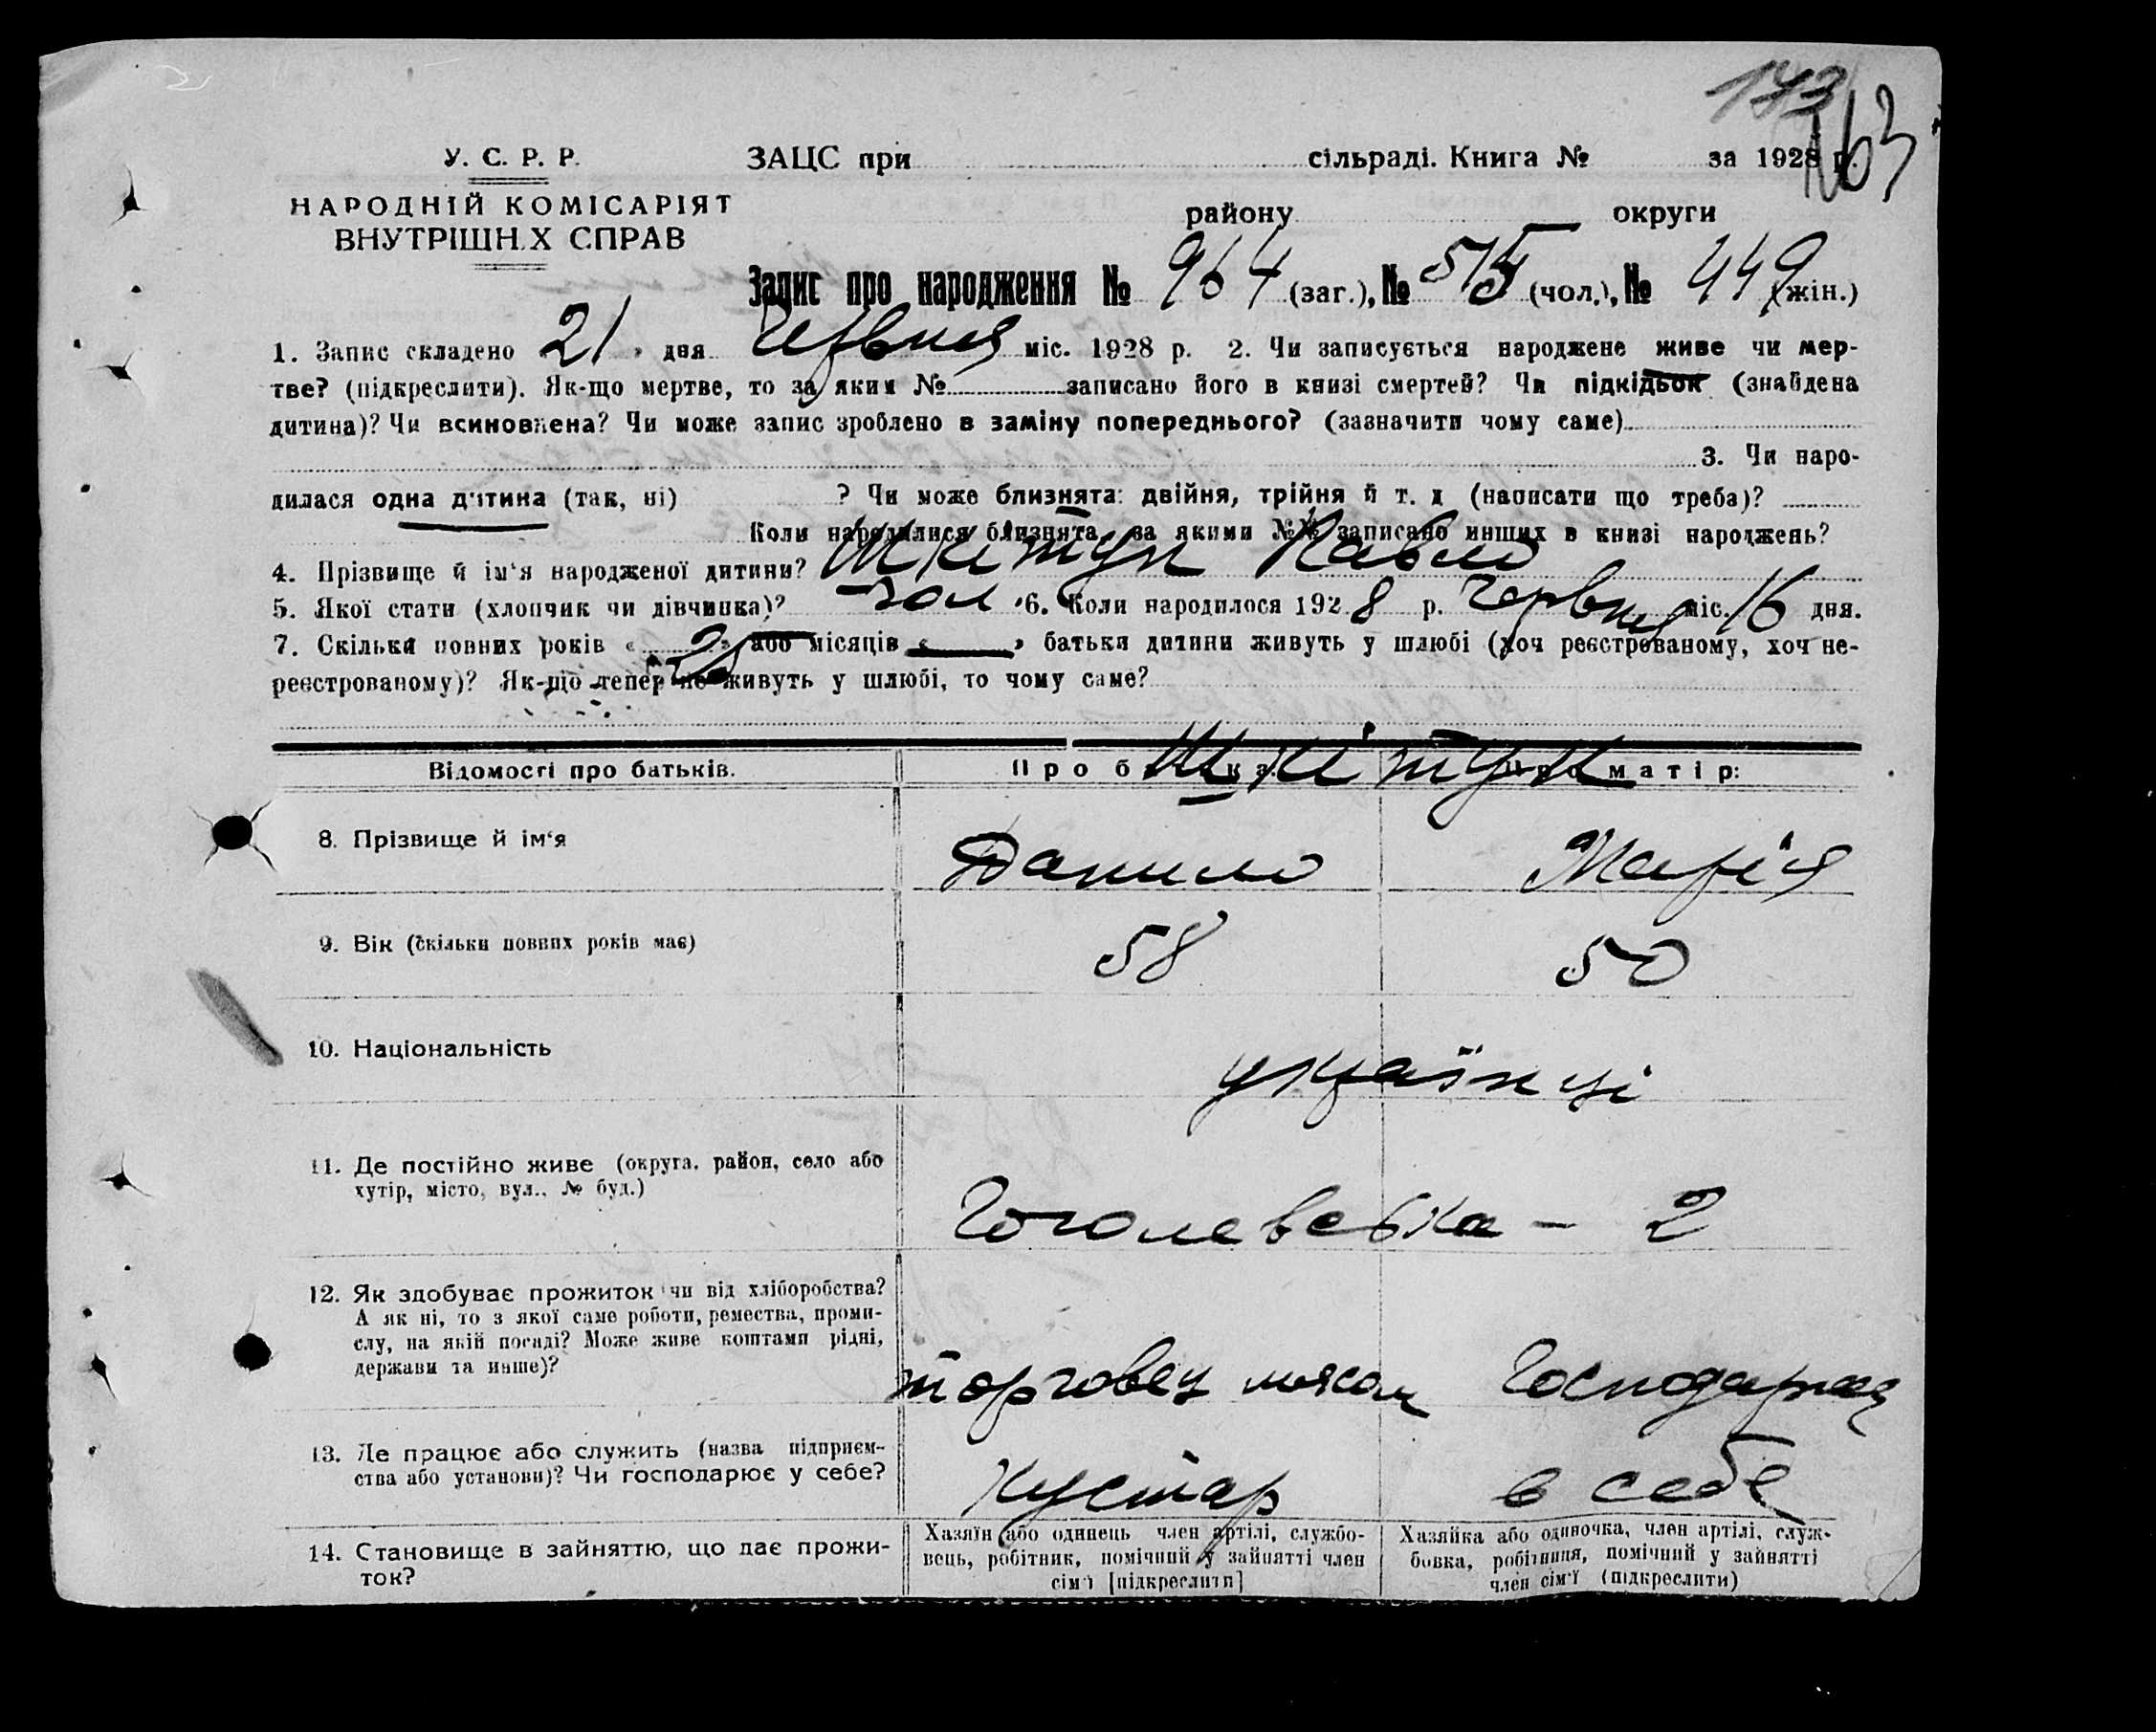 173
163
У. С. Р. Р. ЗАЦС при сільраді. Книга № за 1928 р.
НАРОДНІЙ КОМІСАРІЯТ району округи
ВНУТРІШН.Х СПРАВ
Запис про народження № 964 (заг.), № 515 (чол.), № 449 (жін.)
1. Запис складено 21 дня Червня міс. 1928 р. 2. Чи записується народжене живе чи мер-
тве? (підкреслити). Як-що мертве, то за яким № записано його в книзі смертей? Чи підкідьок (знайдена
дитина)? Чи всиновлена? Чи може запис зроблено в заміну попереднього? (зазначити чому саме)
3. Чи наро-
дилася одна дитина (так, ні) ? Чи може близнята: двійня, трійня й т. д (написати що треба)?
Коли народилися близнята, за якими №№ записано инших в книзі народжень?
4. Прізвище й ім'я народженої дитини? Шкітун Павло
5. Якої стати (хлопчик чи дівчинка)? чол 6. Коли народилося 1928 р. Червня міс. 16 дня.
7. Скільки повних років « » або місяців « — » батьки дитини живуть у шлюбі (хоч реєстрованому, хоч не-
реєстрованому)? Як-що тепер не живуть у шлюбі, то чому саме?
Відомості про батьків. Про батька: Про матір:
Шкітун
8. Прізвище й ім'я Данило Марія
9. Вік (скільки повних років має) 58 50
10. Національність українці
11. Де постійно живе (округа, район, село або
хутір, місто, вул., № буд.)
Гоголевська – 2
12. Як здобуває прожиток чи від хліборобства?
А як ні, то з якої саме роботи, ремества, проми-
слу, на якій посаді? Може живе коштами рідні,
держави та инше)?
торговец мясом Господарка
13. Де працює або служить (назва підприєм-
ства або установи)? Чи господарює у себе?
Кустар в себе
14. Становище в зайняттю, що дає прожи-
ток?
Хазяїн або одинець член артілі, службо-
вець, робітник, помічний у зайнятті член
сім'ї [підкреслити]
Хазяйка або одиночка, член артілі, служ-
бовка, робітниця, помічний у зайнятті
член сім'ї (підкреслити)